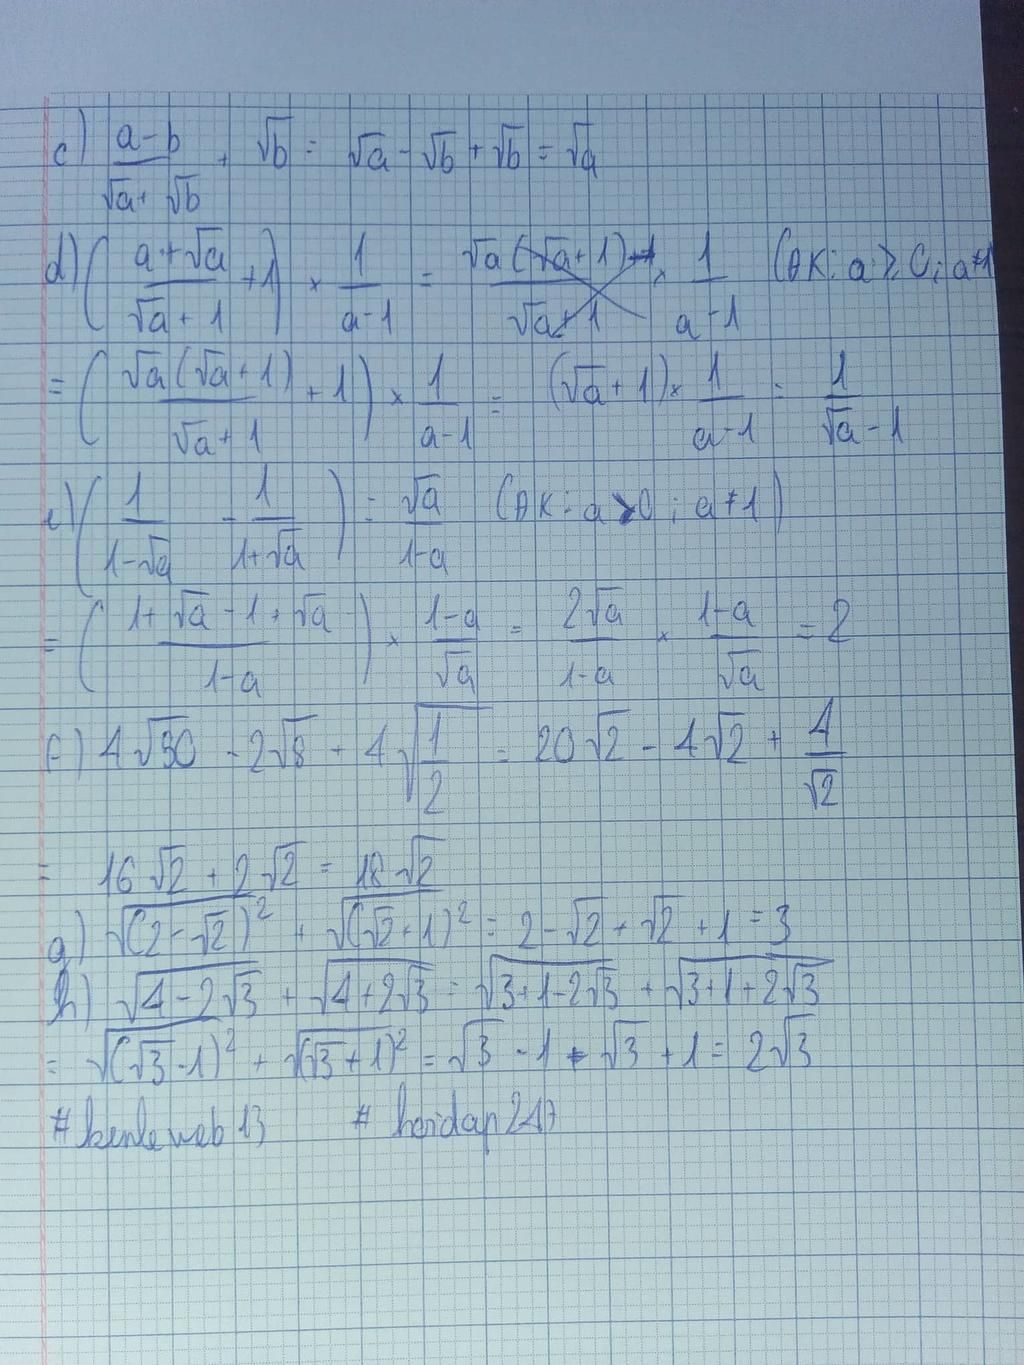 c) (a-b)/(√a+√b) + √b = √a - √b + √b = √a
d) ((a+√a)/(√a+1) + 1) × 1/(a-1) = (√a(√a+1)+1)/(√a+1) × 1/(a-1) (ĐK: a ≥ 0; a≠1
= (√a(√a+1)/(√a+1) + 1) × 1/(a-1) = (√a+1) × 1/(a-1) = 1/(√a-1)
e) (1/(1-√a) - 1/(1+√a)) : √a/(1-a) (ĐK: a>0; a≠1)
= ((1+√a-1+√a)/(1-a)) × (1-a)/√a = 2√a/(1-a) × (1-a)/√a = 2
f) 4√50 - 2√8 + 4√(1/2) = 20√2 - 4√2 + 4/√2
= 16√2 + 2√2 = 18√2
g) √(2-√2)² + √(√2+1)² = 2-√2 + √2 + 1 = 3
h) √(4-2√3) + √(4+2√3) = √(3+1-2√3) + √(3+1+2√3)
= √(√3-1)² + √(√3+1)² = √3 - 1 + √3 + 1 = 2√3
#hoidap247